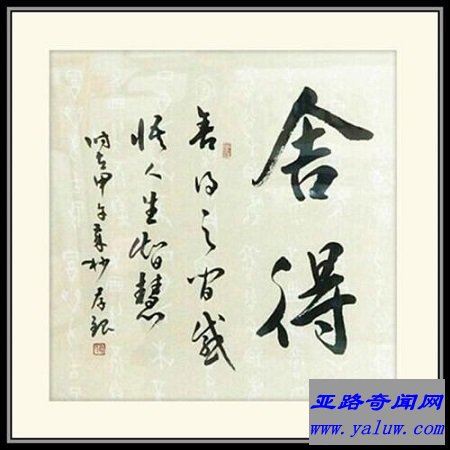 舍得
舍得之间感
悟人生智慧
时在甲午
亚路奇闻网
www.yaluw.com